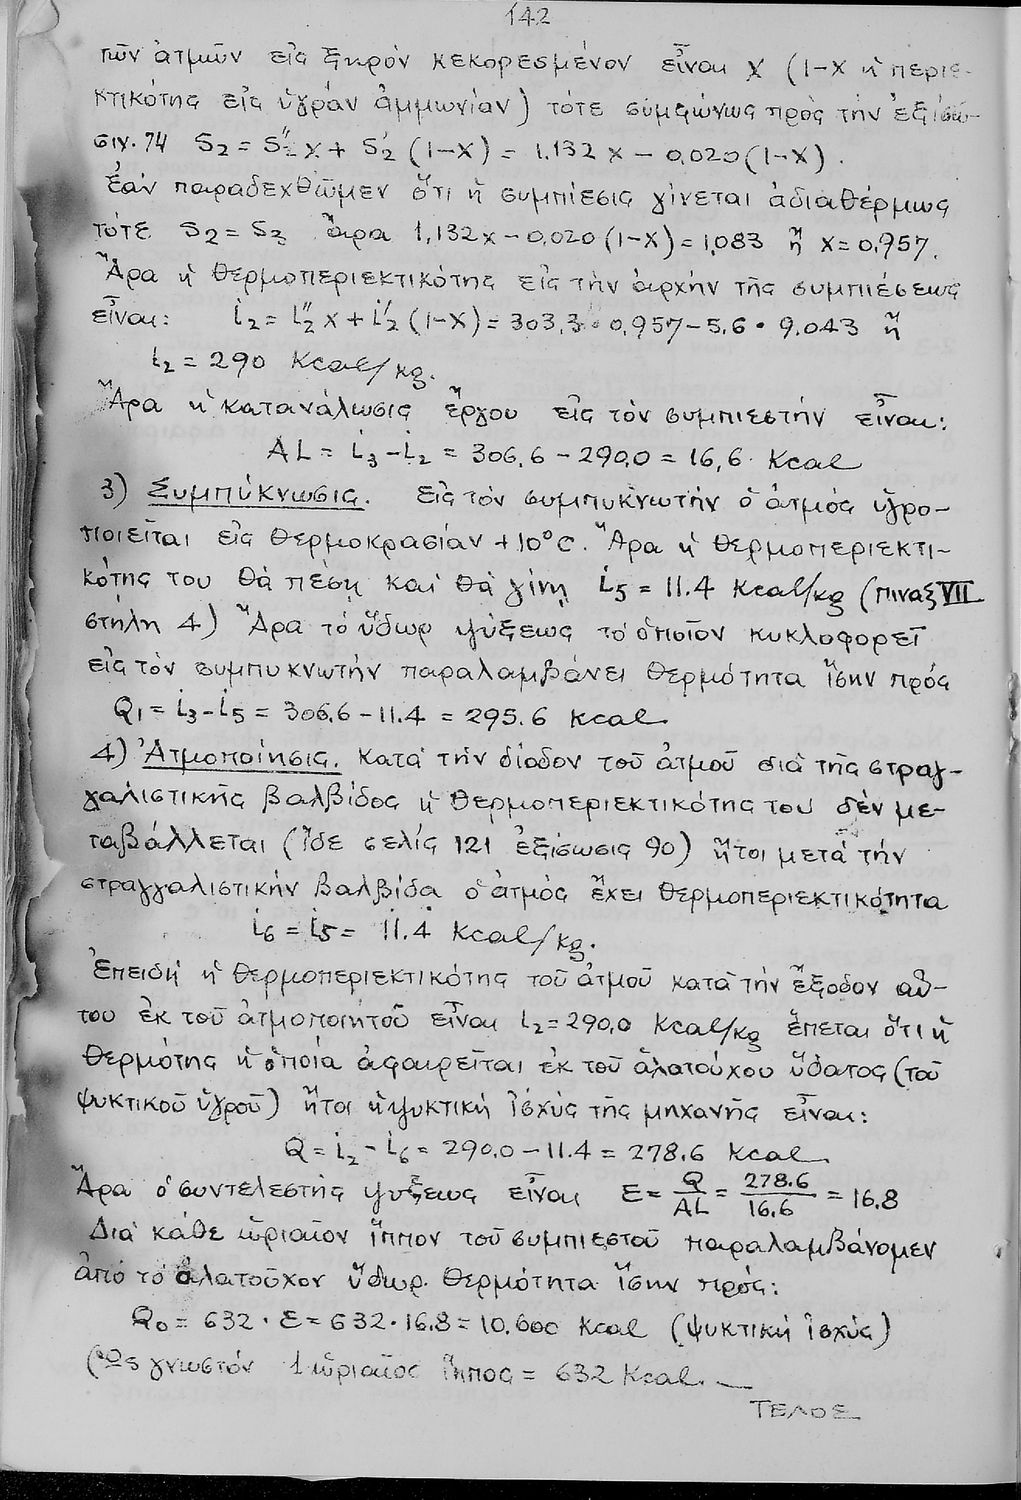 142
τῶν ἀτμῶν εἰς ξηρόν κεκορεσμένον εἶναι x (1-x ἡ περιε-
κτικότης εἰς ὑγράν ἀμμωνίαν) τότε συμφώνως πρός τήν ἐξίσω-
σιν. 74 S₂ = S₂″ x + S₂′ (1-x) = 1.132 x - 0,020 (1-x).
Ἐάν παραδεχθῶμεν ὅτι ἡ συμπίεσις γίνεται ἀδιαθέρμως
τότε S₂ = S₃ ἄρα 1,132x - 0,020 (1-x) = 1,083 ἤ x = 0,957.
Ἄρα ἡ θερμοπεριεκτικότης εἰς τήν ἀρχήν τῆς συμπιέσεως
εἶναι: i₂ = i₂″ x + i₂′ (1-x) = 303,3 · 0,957 - 5,6 · 9.043 ἤ
i₂ = 290 Kcal/kg.
Ἄρα ἡ κατανάλωσις ἔργου εἰς τόν συμπιεστήν εἶναι:
AL = i₃ - i₂ = 306,6 - 290,0 = 16,6 Kcal
3) Συμπύκνωσις. Εἰς τόν συμπυκνωτήν ὁ ἀτμός ὑγρο-
ποιεῖται εἰς θερμοκρασίαν +10°C. Ἄρα ἡ θερμοπεριεκτι-
κότης του θά πέση καί θά γίνη i₅ = 11.4 Kcal/kg (πιναξ VII
στήλη 4) Ἄρα τό ὕδωρ ψύξεως τό ὁποῖον κυκλοφορεῖ
εἰς τόν συμπυκνωτήν παραλαμβάνει θερμότητα ἴσην πρός
Q₁ = i₃ - i₅ = 306.6 - 11.4 = 295.6 Kcal.
4) Ἀτμοποίησις. Κατά τήν δίοδον τοῦ ἀτμοῦ διά τῆς στραγ-
γαλιστικῆς βαλβίδος ἡ θερμοπεριεκτικότης του δέν με-
ταβάλλεται (ἴδε σελίς 121 ἐξίσωσις 90) ἤτοι μετά τήν
στραγγαλιστικήν βαλβίδα ὁ ἀτμός ἔχει θερμοπεριεκτικότητα
i₆ = i₅ = 11.4 Kcal/kg.
Ἐπειδή ἡ θερμοπεριεκτικότης τοῦ ἀτμοῦ κατά τήν ἔξοδον αὐ-
του ἐκ τοῦ ἀτμοποιητοῦ εἶναι i₂ = 290,0 Kcal/kg ἕπεται ὅτι ἡ
θερμότης ἡ ὁποία ἀφαιρεῖται ἐκ τοῦ ἁλατούχου ὕδατος (τοῦ
ψυκτικοῦ ὑγροῦ) ἤτοι ἡ ψυκτική ἰσχύς τῆς μηχανῆς εἶναι:
Q = i₂ - i₆ = 290.0 - 11.4 = 278.6 Kcal.
Ἄρα ὁ συντελεστής ψύξεως εἶναι ε = Q/AL = 278.6/16.6 = 16.8
Διά κάθε ὡριαῖον ἵππον τοῦ συμπιεστοῦ παραλαμβάνομεν
ἀπό τό ἁλατοῦχον ὕδωρ. θερμότητα ἴσην πρός:
Q₀ = 632 · ε = 632 · 16.8 = 10.600 Kcal (ψυκτική ἰσχύς)
(Ὡς γνωστόν 1 ὡριαῖος ἵππος = 632 Kcal. —
ΤΕΛΟΣ